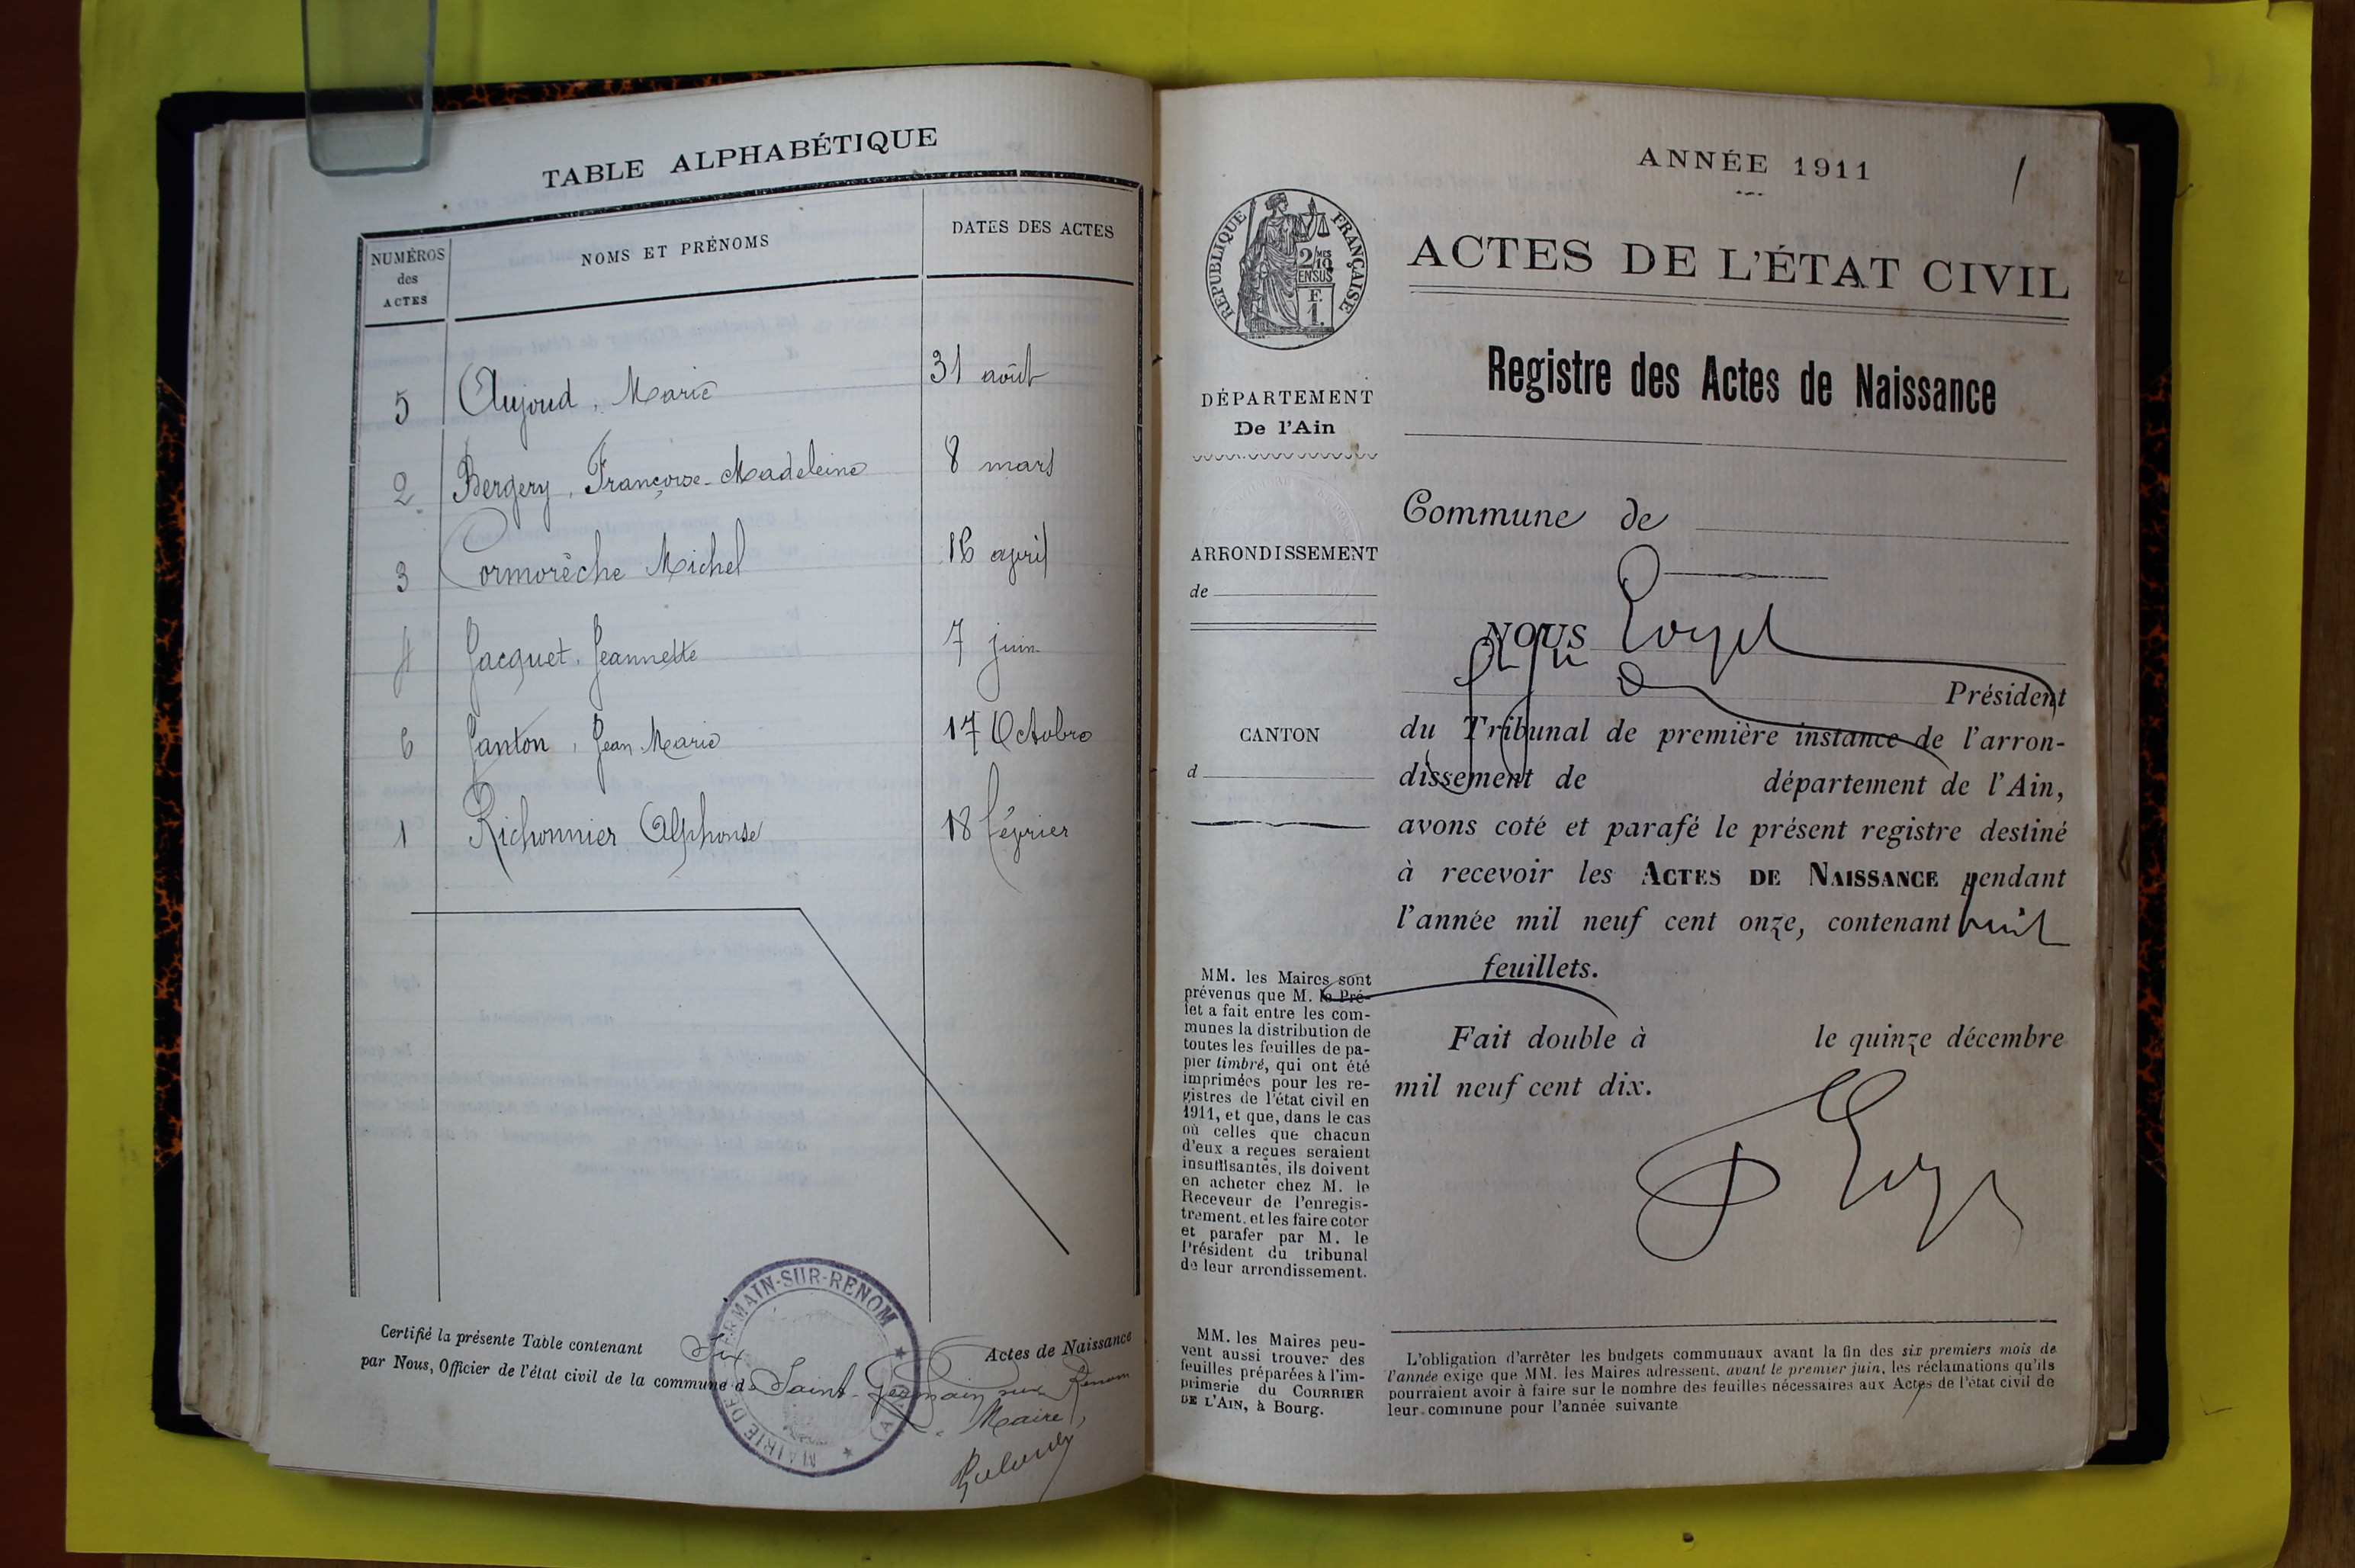 TABLE ALPHABÉTIQUE
NUMÉROS
des
ACTES
NOMS ET PRÉNOMS
DATES DES ACTES
5 Aujoud, Marie 31 août
2 Bergery, Françoise-Madeleine 8 mars
3 Cormorèche Michel 16 avril
4 Jacquet, Jeannette 7 juin
6 Janton, Jean Marie 17 Octobre
1 Richonnier Alphonse 18 février
Certifié la présente Table contenant Six Actes de Naissance
par Nous, Officier de l'état civil de la commune de Saint-Germain sur Renom
Maire,
MAIRIE DE ERMAIN-SUR-RENOM
ANNÉE 1911
1
RÉPUBLIQUE FRANÇAISE
2/10MES
EN SUS
F.
1.
ACTES DE L'ÉTAT CIVIL
Registre des Actes de Naissance
DÉPARTEMENT
De l'Ain
ARRONDISSEMENT
de
CANTON
d
MM. les Maires sont
prévenus que M. le Pré-
fet a fait entre les com-
munes la distribution de
toutes les feuilles de pa-
pier timbré, qui ont été
imprimées pour les re-
gistres de l'état civil en
1911, et que, dans le cas
où celles que chacun
d'eux a reçues seraient
insuffisantes, ils doivent
en acheter chez M. le
Receveur de l'enregis-
trement, et les faire coter
et parafer par M. le
Président du tribunal
de leur arrondissement.
MM. les Maires peu-
vent aussi trouver des
feuilles préparées à l'im-
primerie du COURRIER
DE L'AIN, à Bourg.
Commune de
NOUS
Président
du Tribunal de première instance de l'arron-
dissement de département de l'Ain,
avons coté et parafé le présent registre destiné
à recevoir les ACTES DE NAISSANCE pendant
l'année mil neuf cent onze, contenant huit
feuillets.
Fait double à le quinze décembre
mil neuf cent dix.
L'obligation d'arrêter les budgets communaux avant la fin des six premiers mois de
l'année exige que MM. les Maires adressent, avant le premier juin, les réclamations qu'ils
pourraient avoir à faire sur le nombre des feuilles nécessaires aux Actes de l'état civil de
leur commune pour l'année suivante